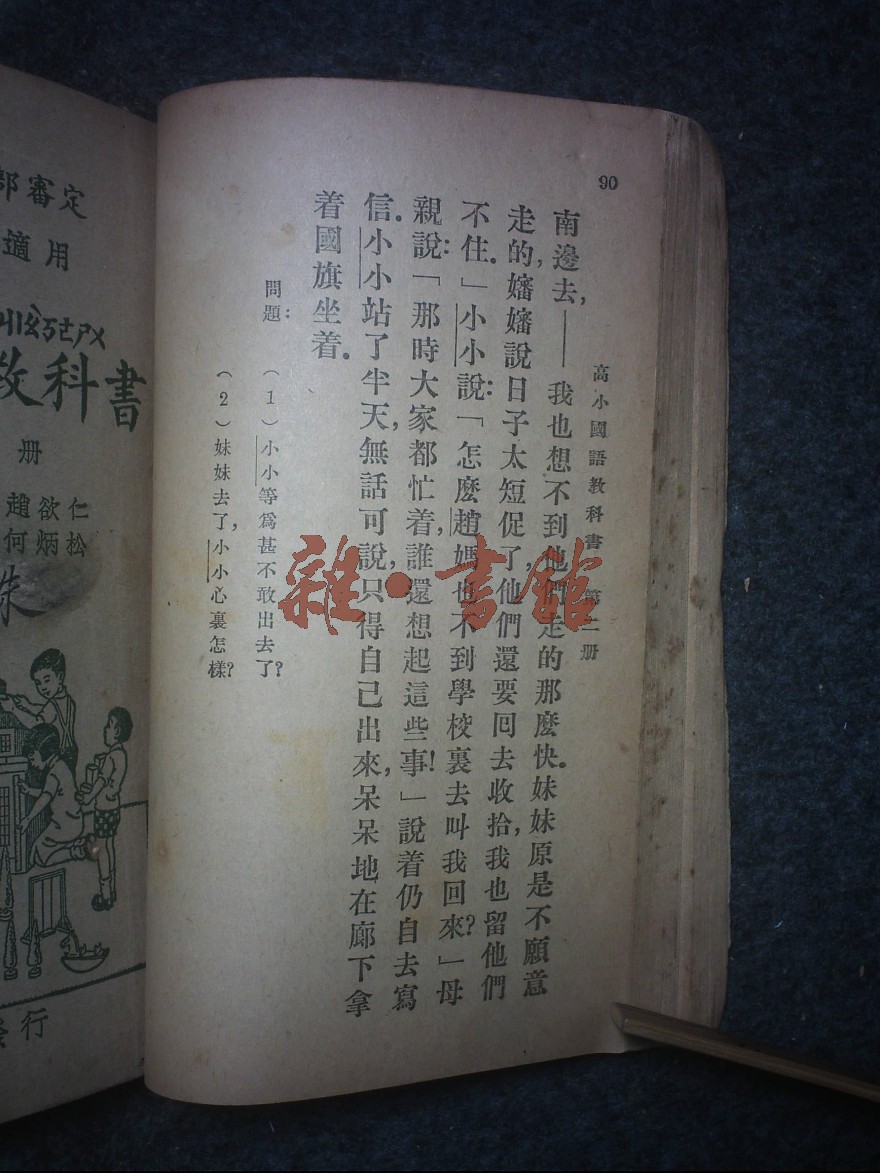 90
高小國語教科書 第二册
南邊去,——我也想不到他們走的那麽快。妹妹原是不願意
走的,嬸嬸說日子太短促了,他們還要回去收拾,我也留他們
不住。」小小說:「怎麽趙媽也不到學校裏去叫我回來?」母
親說:「那時大家都忙着,誰還想起這些事!」說着仍自去寫
信。小小站了半天,無話可說,只得自己出來,呆呆地在廊下拿
着國旗坐着。
問題:
(1)小小等爲甚不敢出去了?
(2)妹妹去了,小小心裏怎樣?
雜·書館
部審定
適用
教科書
册
趙欲仁
何炳松
發行